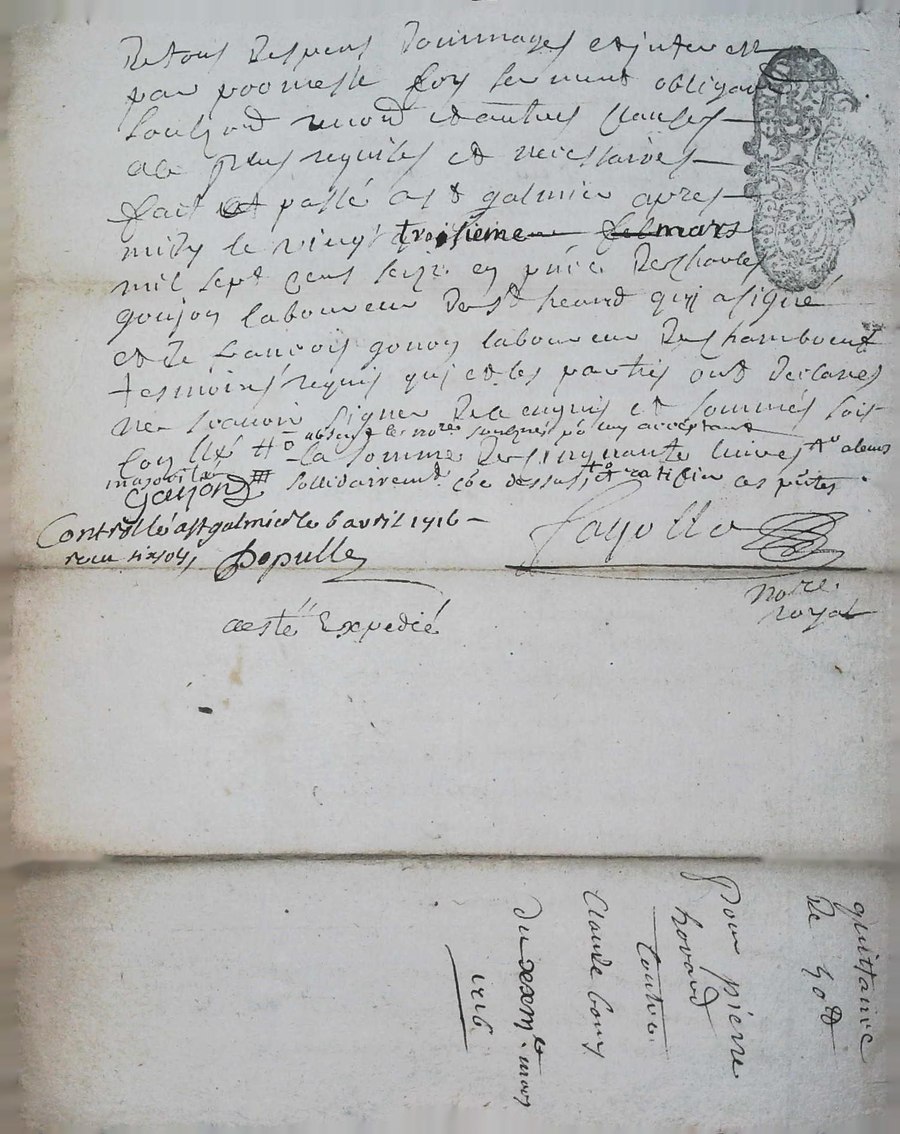 De tous despens dommages et interest
par promesse foy serment obligaon
soubzon renon et autres clauses
a ce plus requises et necessaires
fait et passé a st galmier apres
midy le vingt troisieme mars
mil sept cens seize en pnce de charles
goujon laboureur de st heand qui a signé
et de francois gonon laboureur de chamboeuf
tesmoins requis qui et les parties ont declarés
ne scavoir signer de ce enquis et sommés soit
absent le nore soubzné
la somme de cinquante livres
sollidairement coe dessus
goujon
Controllé a st galmier le 6 avril 1716
receu six sols Populle
Fayolle
nore
royal
a esté Expedié
quittance
de 50 ll
Pour pierre
contre
Claude bony
du xxiii mars
1716